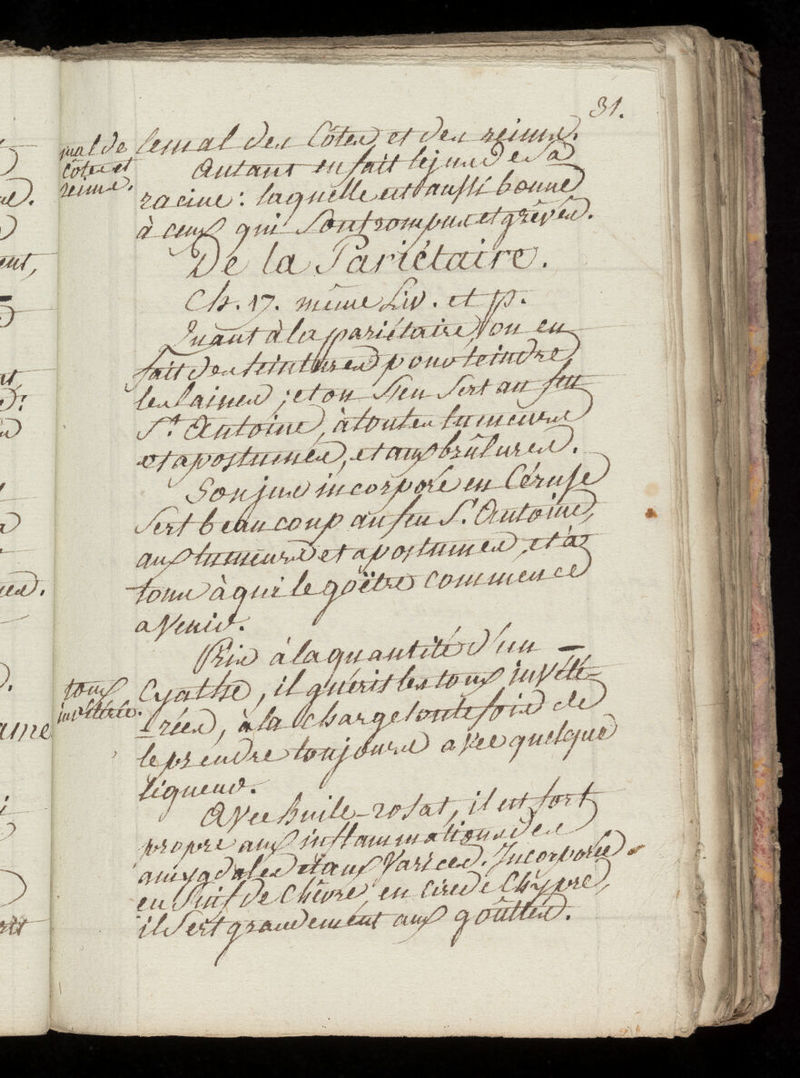 31.
mal de
côtes et
reims.
le mal des Côtes et des reims.
Autant en fait le jus de sa
racine: laquelle est aussi bonne
à ceux qui sont rompus et grévés.
De la Pariétaire.
Ch. 17. même Liv. et p.
Quant à la pariétaire, on en
fait des teintures pour teindre
les laines; et on s'en sert au feu
St. Antoine, à toutes tumeurs
et apostumes, et aux brûlures.
Son jus incorporé en Céruse
sert beaucoup au feu St. Antoine,
aux tumeurs et apostumes, et à
tous à qui le goëtre commence
a venir.
Pris à la quantité d'un
toux
invétérée.
Cyathe, il guérit les toux invété-
-rées, à la charge toutefois de
le prendre toujours avec quelque
ligueur.
Avec huile-rosat, il est fort
propre aux inflammations des
amygdales et aux Varices. Incorporée
en Suif de Chèvre, en cire de Chypre,
il sert grandement aux goûttes.